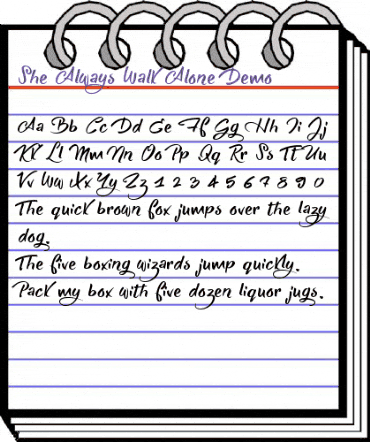 She Always Walk Alone Demo
Aa Bb Cc Dd Ee Ff Gg Hh Ii Jj
Kk Ll Mm Nn Oo Pp Qq Rr Ss Tt Uu
Vv Ww Xx Yy Zz 1 2 3 4 5 6 7 8 9 0
The quick brown fox jumps over the lazy
dog.
The five boxing wizards jump quickly.
Pack my box with five dozen liquor jugs.